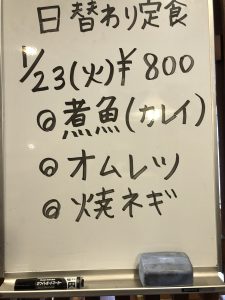 日替わり定食
1/23(火)¥800
◎煮魚(カレイ)
◎オムレツ
◎焼ネギ